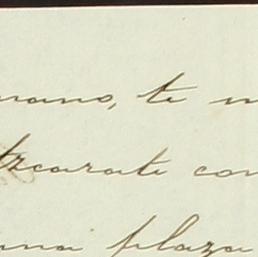 mano, te m
tzcarate con
una plaza